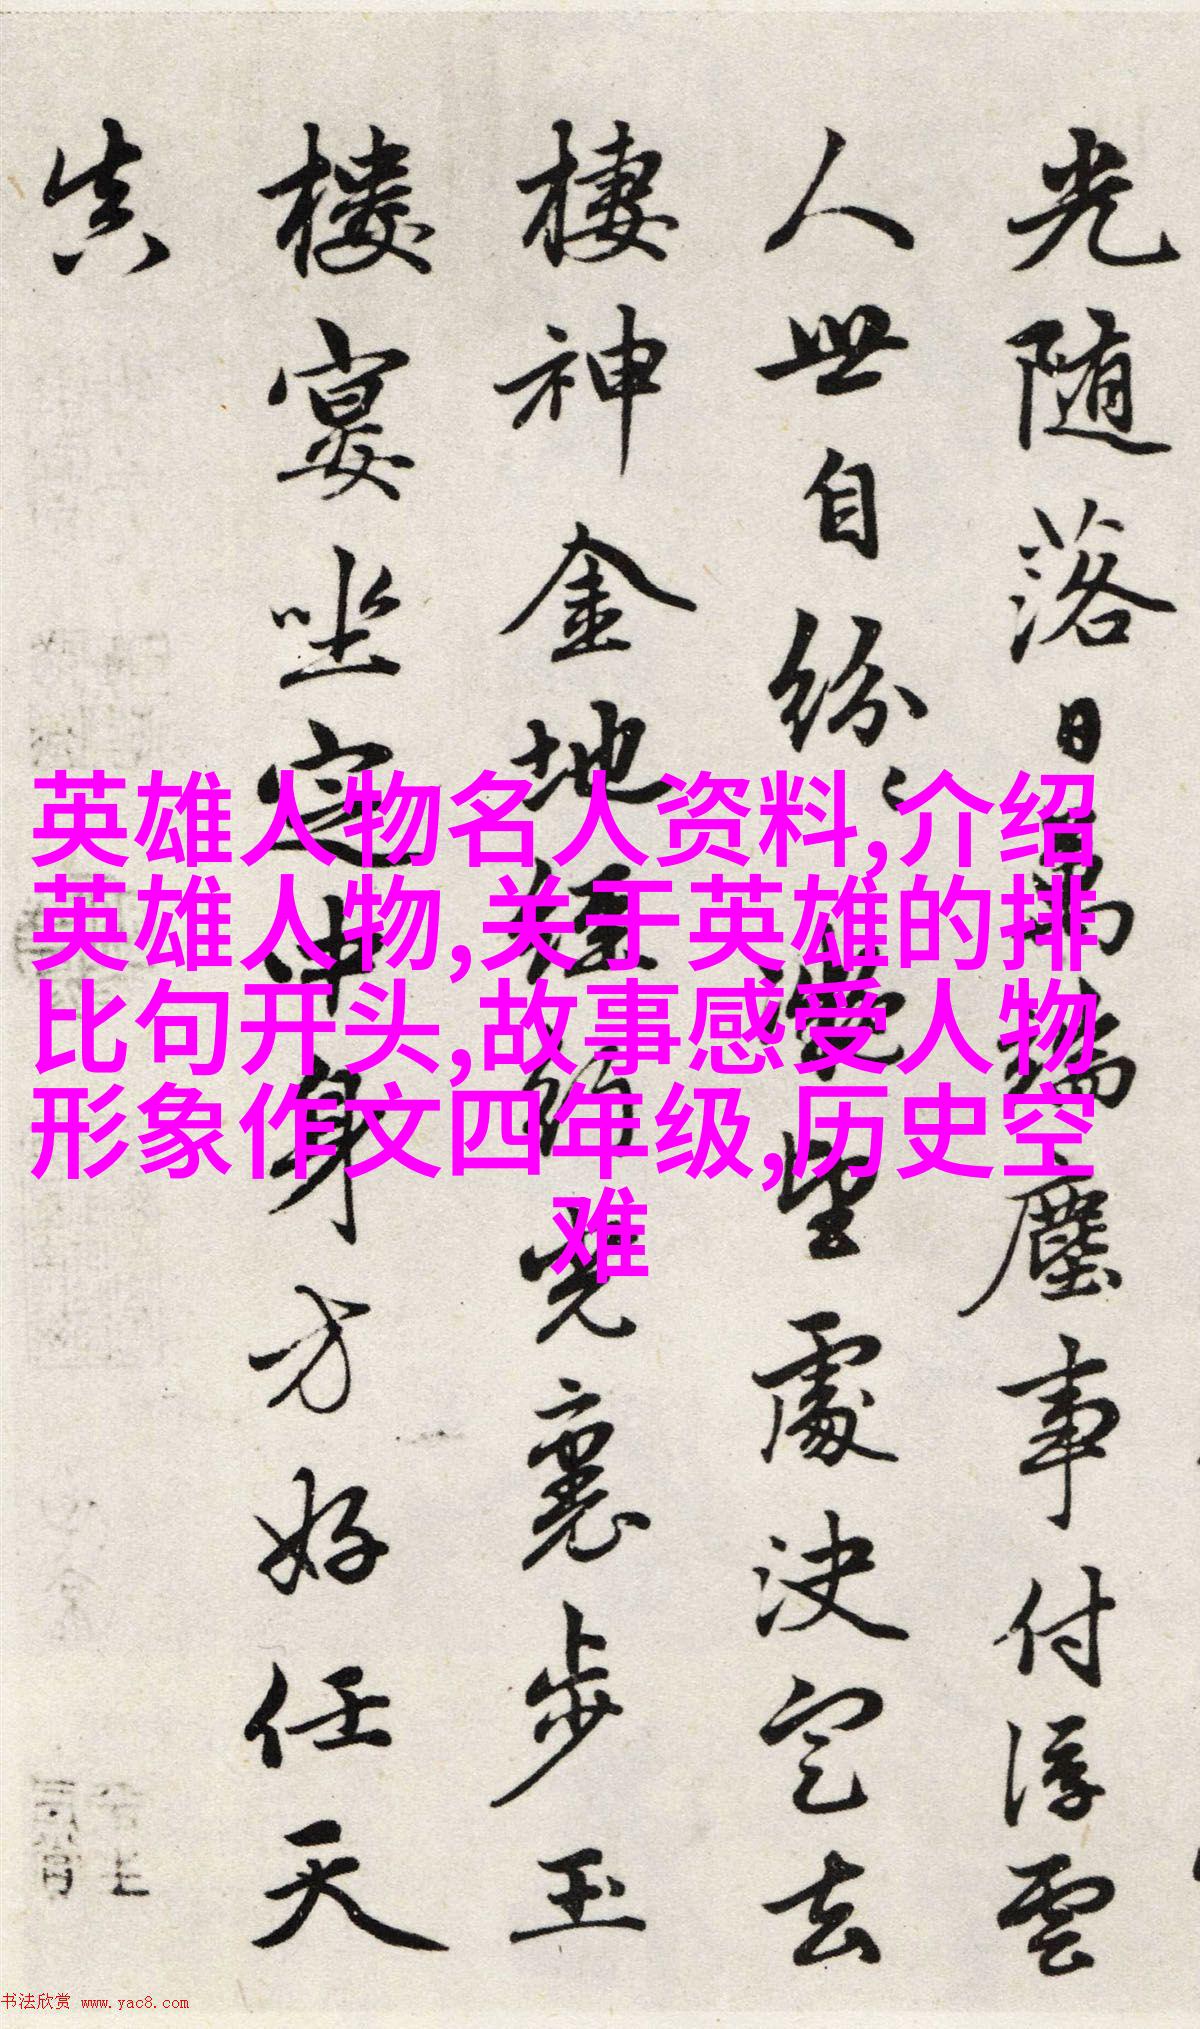 光随落日萬端塵事付浮雲
人世自纷望處决定去
棲神金地步玉
樓宴坐定中身方好任天
真
英雄人物名人资料,介绍
英雄人物,关于英雄的排
比句开头,故事感受人物
形象作文四年级,历史空
难
书法欣赏 www.yac8.com